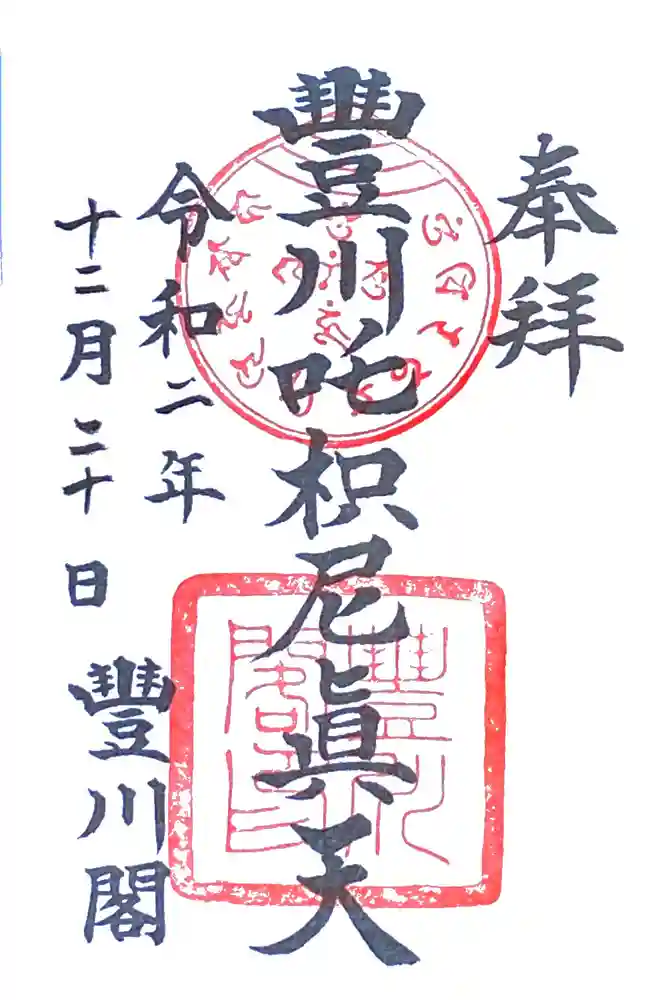 奉拜
豐川吒枳尼眞天
令和二年
十二月二十日
豐川閣
豐川閣印